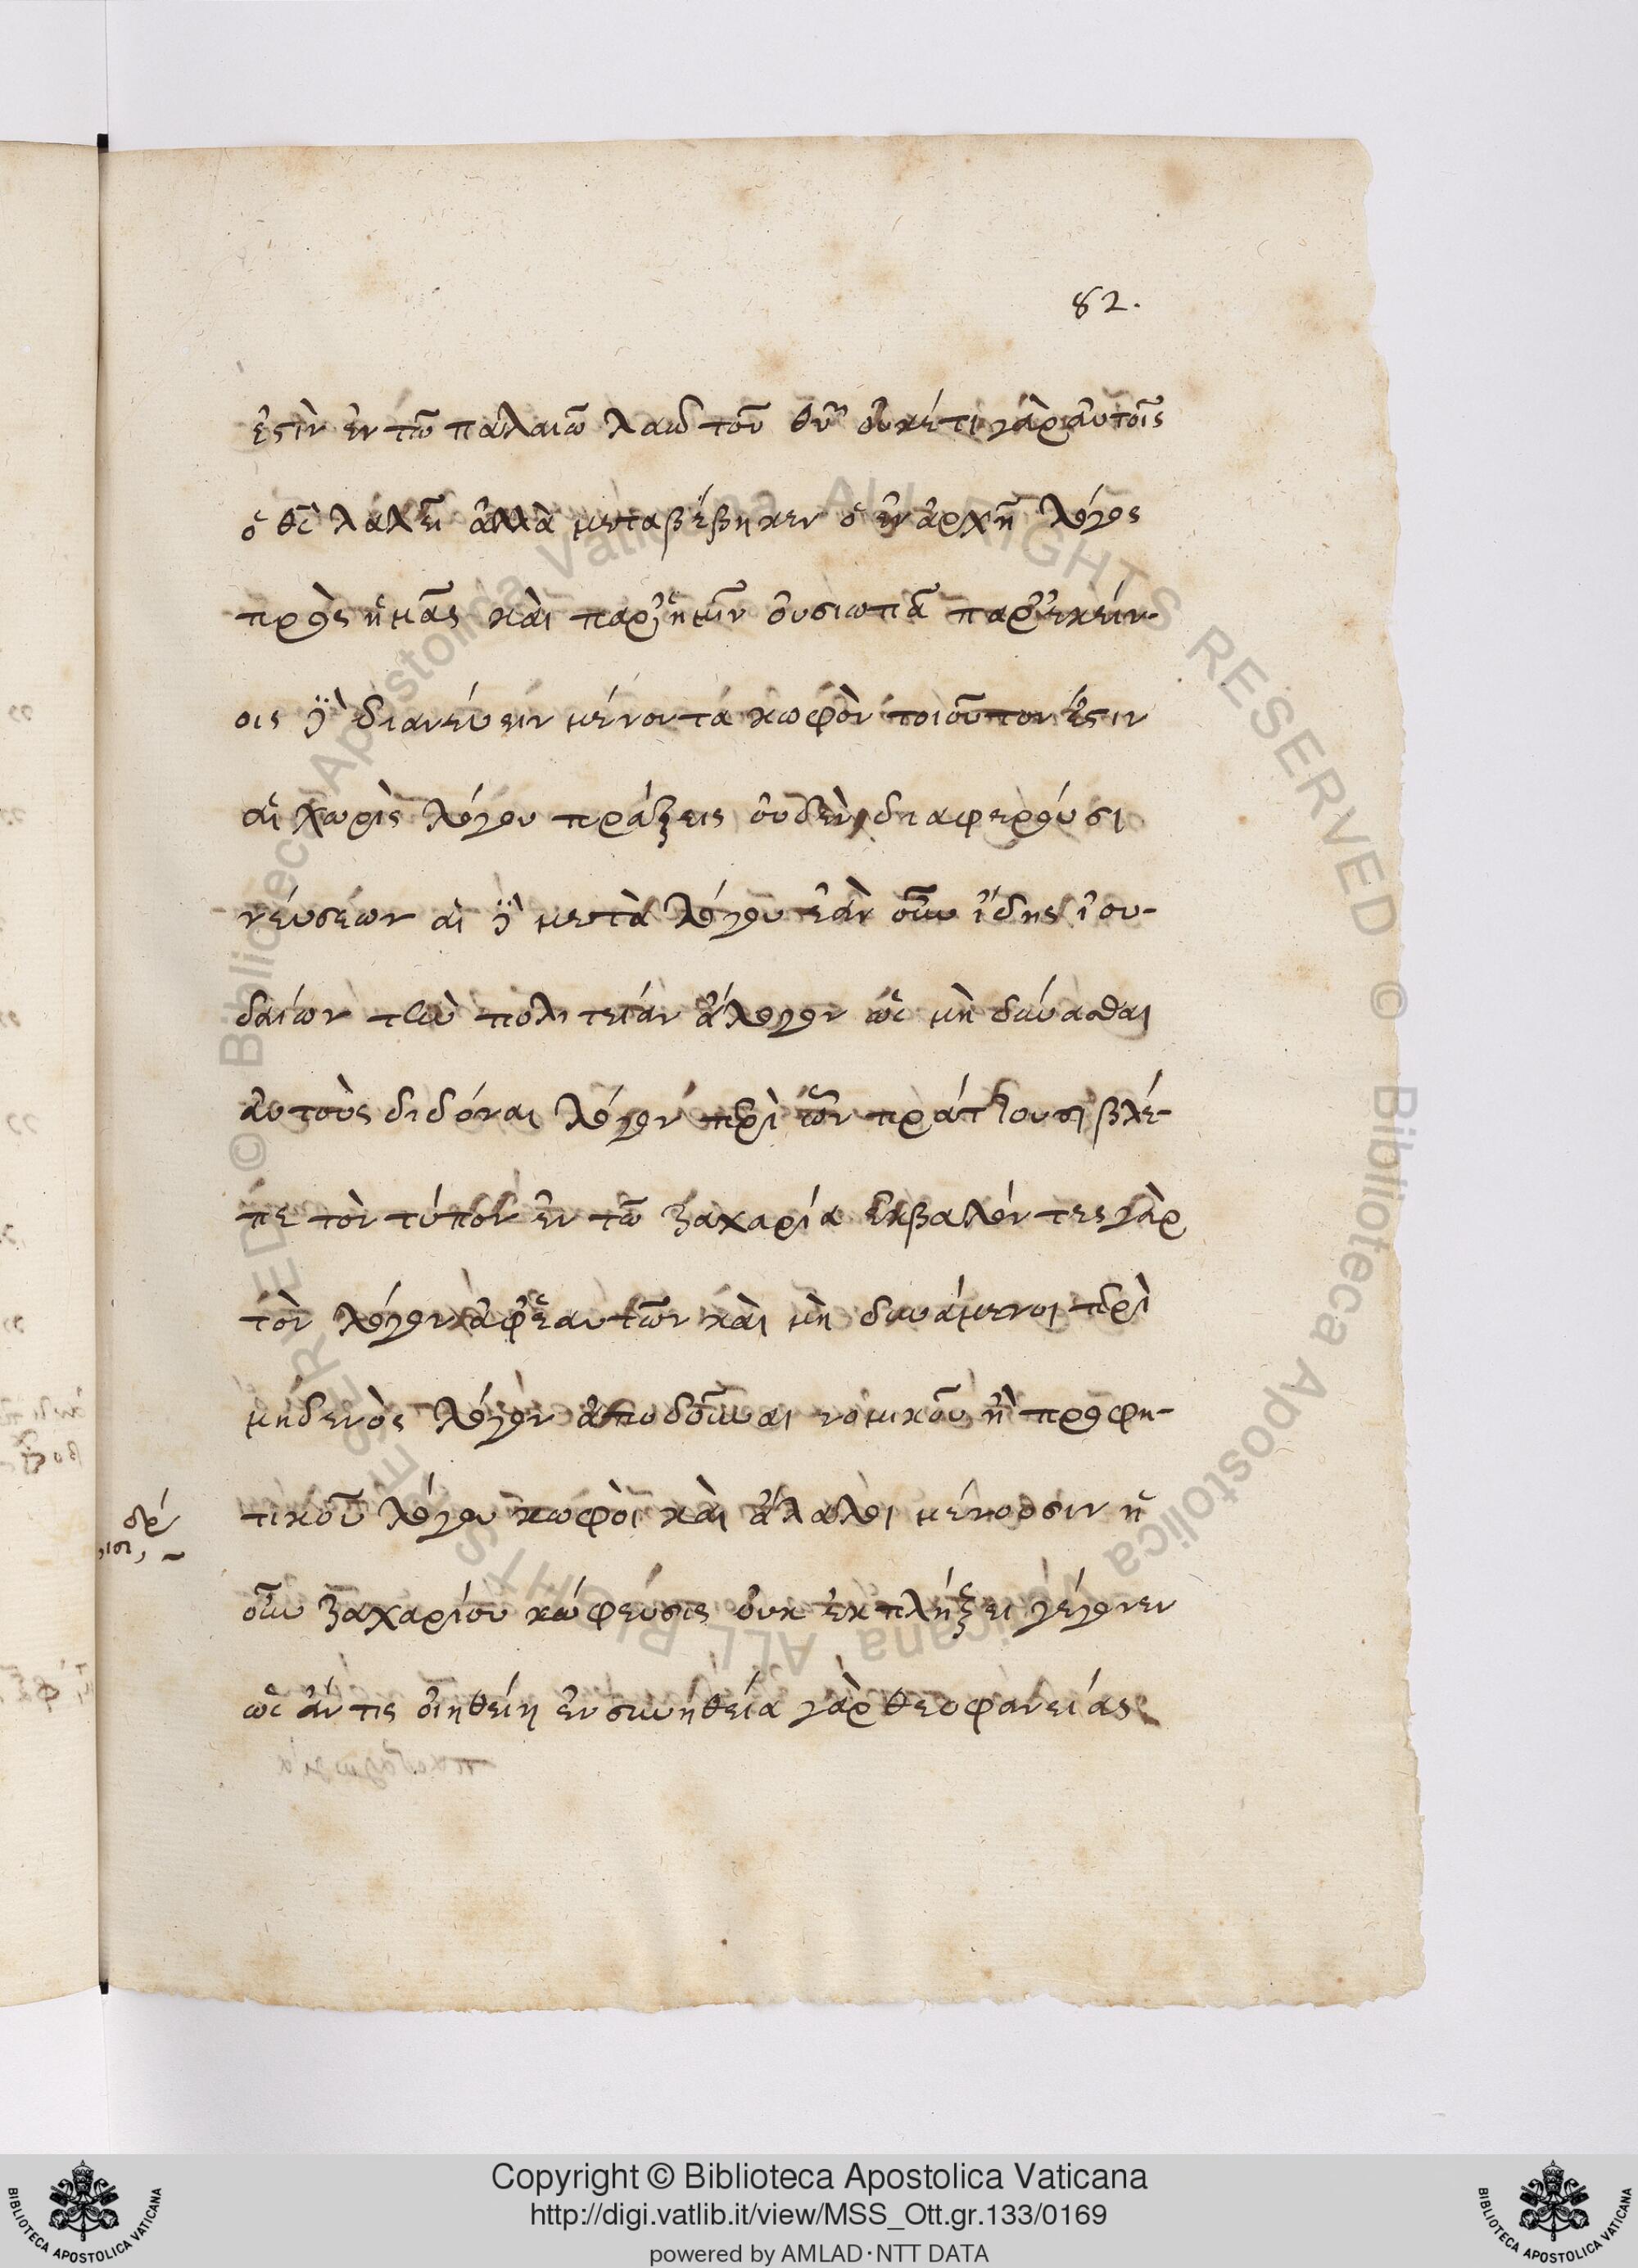 82.
ἐστὶν ἐν τῶ παλαιῶ λαῶ τοῦ θυ̅ οὐκέτι γὰρ αὐτοῖς
ὁ θς̅ λαλεῖ ἀλλὰ μεταβέβηκεν ὁ ἐν ἀρχῇ λόγος
πρὸς ἡμᾶς καὶ παρ' ἡμῖν οὐ σιωπᾶ παρ' ἐκείν-
οις δὲ διανεύειν μένοντα κωφὸν τοιοῦτον ἐστιν
αἱ χωρὶς λόγου πράξεις οὐδὲν διαφερούσι
νεύσεων αἱ δὲ μετὰ λόγου ἐὰν οὖν ἴδης ἰου-
δαίων τὴν πολιτείαν ἄλογον ὡς μὴ δύνασθαι
αὐτοὺς διδόναι λόγον περὶ ὧν πράττουσι βλέ-
πε τὸν τύπον ἐν τῶ ζαχαρία ἐκβαλόντες γὰρ
τὸν λόγον ἀφ' ἑαυτῶν καὶ μὴ δυνάμενοι περὶ
μηδενὸς λόγον ἀποδοῦναι νομικοῦ ἢ προφη-
τικοῦ λόγου κωφοὶ καὶ ἄλαλοι μένουσιν ἡ
οὖν ζαχαρίου κώφευσις οὐκ ἐκπλήξει γέγονεν
ὡς ἄν τις οἰηθείη ἐν συνηθεία γὰρ θεοφανείας
Copyright © Biblioteca Apostolica Vaticana
http://digi.vatlib.it/view/MSS_Ott.gr.133/0169
powered by AMLAD·NTT DATA
BIBLIOTECA APOSTOLICA VATICANA
BIBLIOTECA APOSTOLICA VATICANA
© Biblioteca Apostolica Vaticana ALL RIGHTS RESERVED © Biblioteca Apostolica Vaticana ALL RIGHTS RESERVED